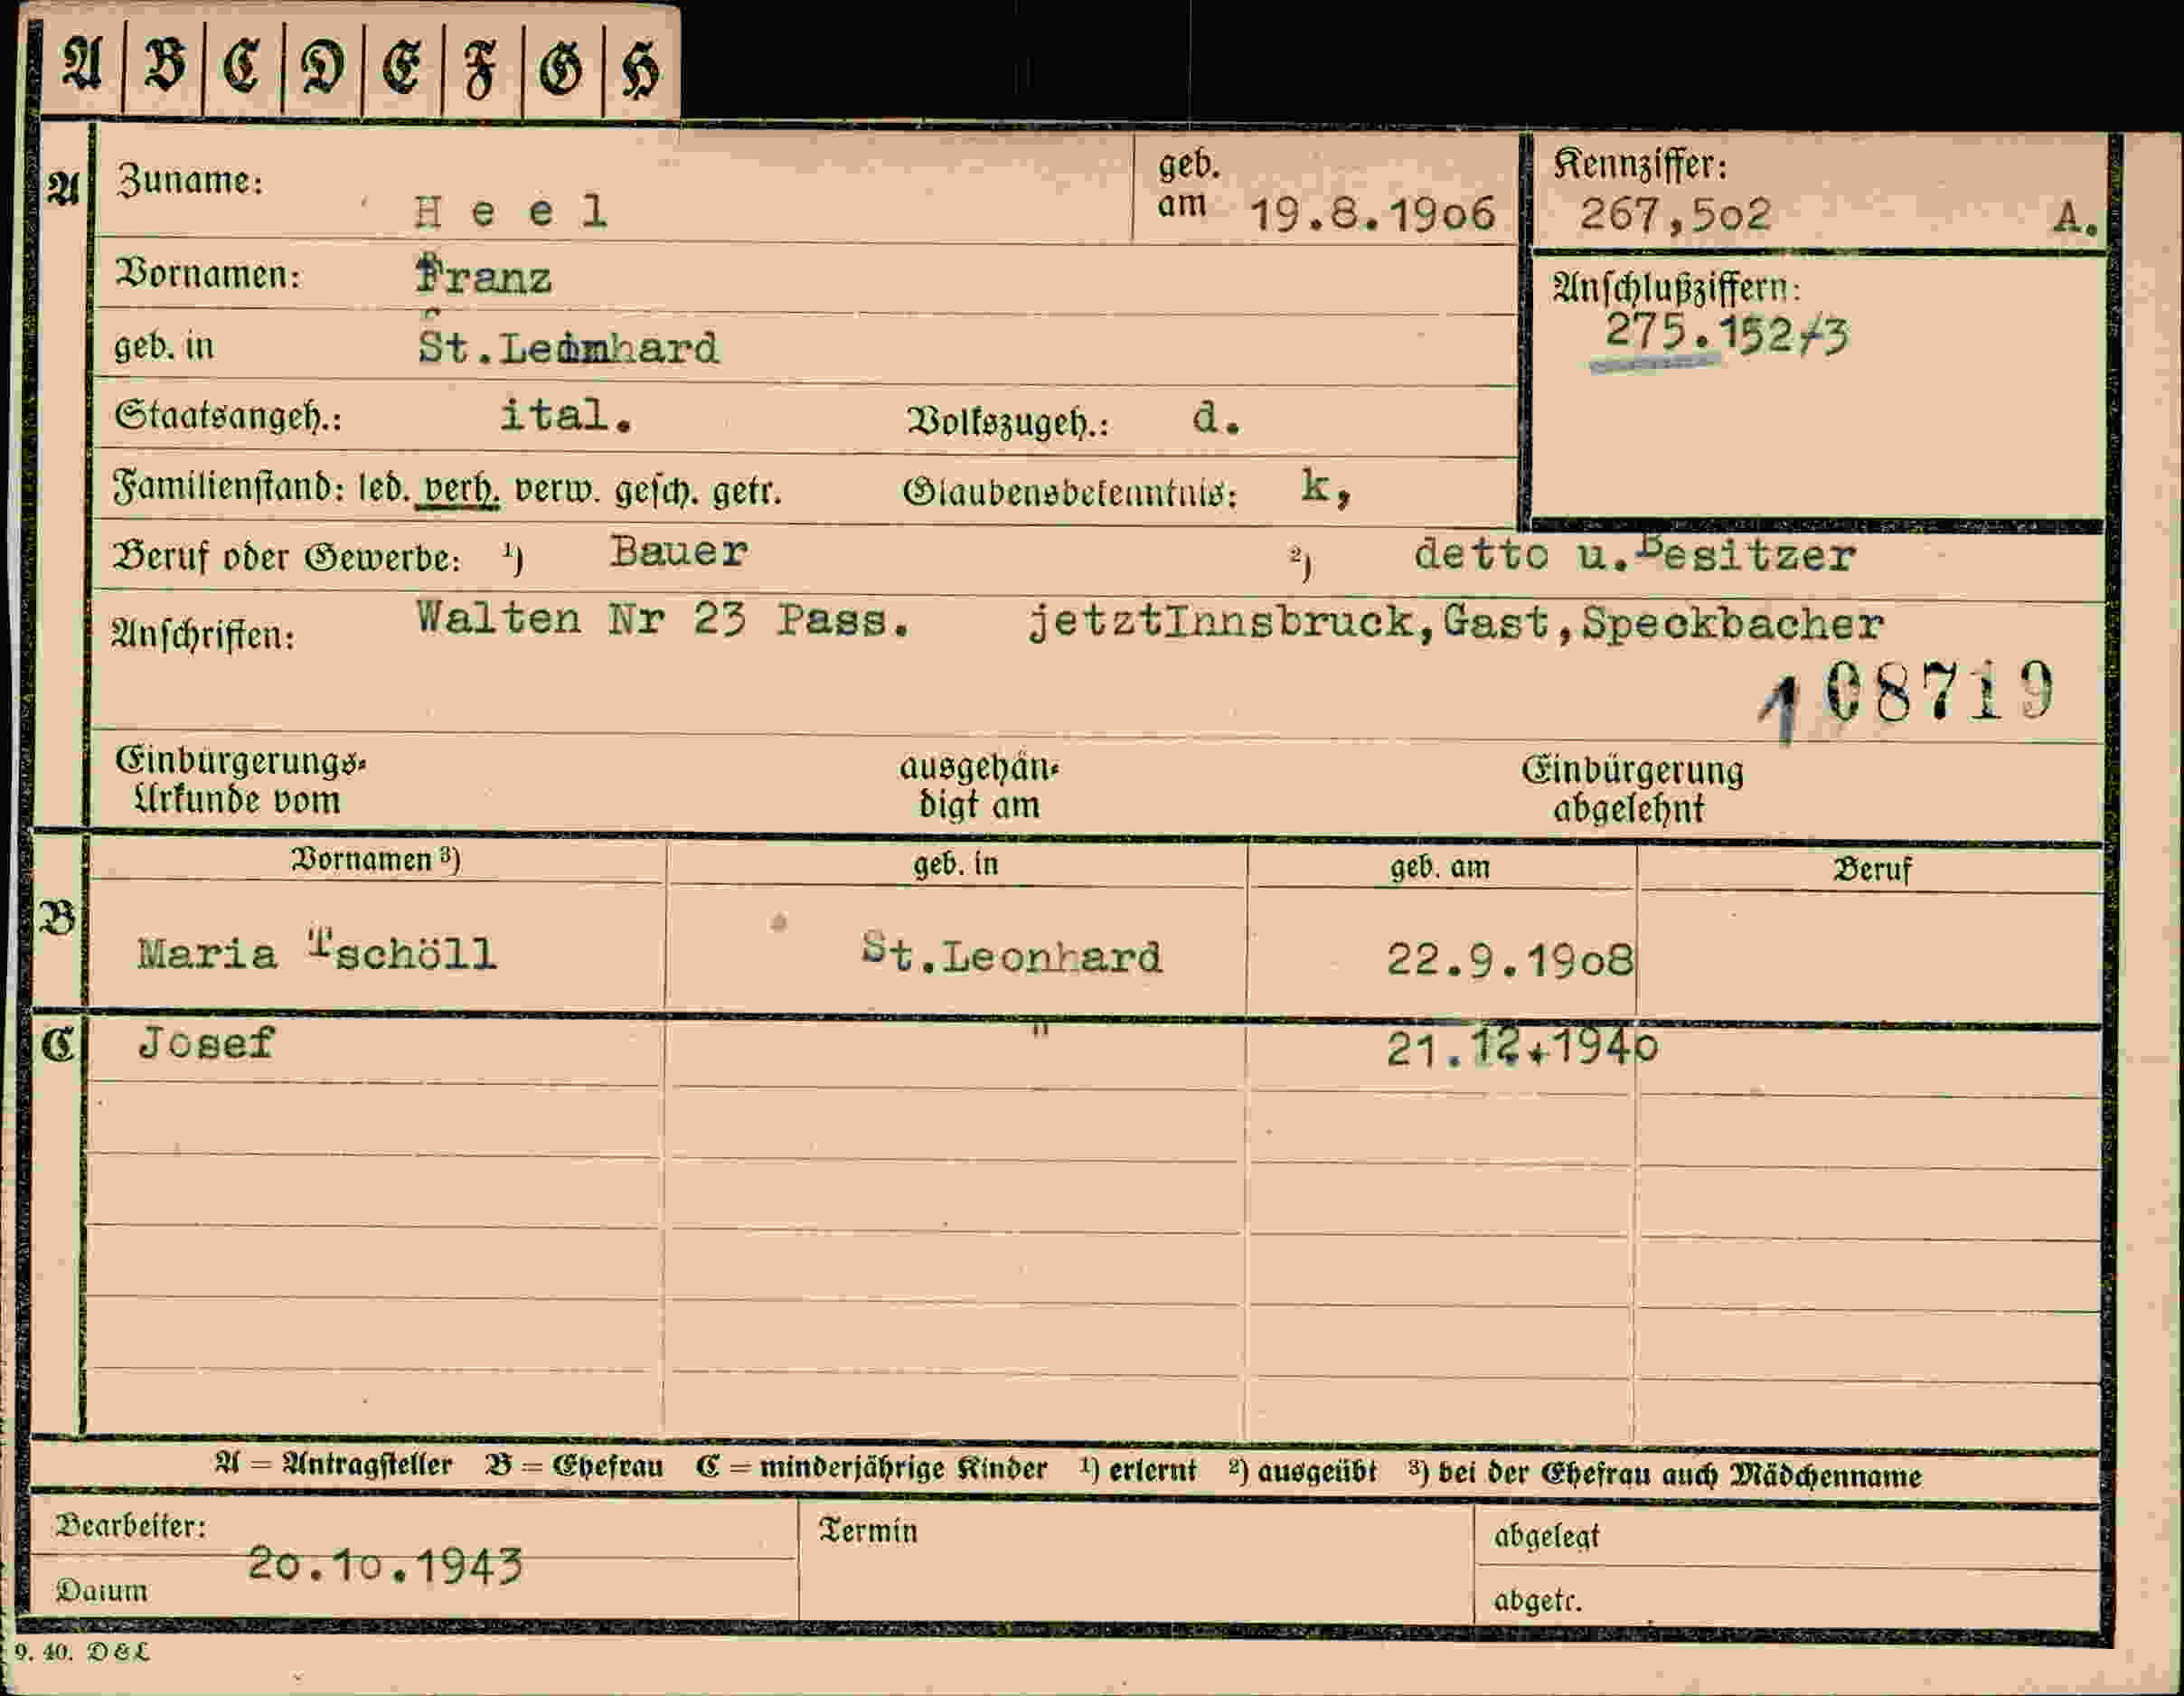 A B C D E F G H
A Zuname: H e e l geb. am 19.8.1906 Kennziffer: 267,502 A.
Vornamen: Franz Anschlußziffern: 275.152/3
geb. in St.Leonhard
Staatsangeh.: ital. Volkszugeh.: d.
Familienstand: led. verh. verw. gesch. getr. Glaubensbekenntnis: k,
Beruf oder Gewerbe: ¹) Bauer ²) detto u.Besitzer
Anschriften: Walten Nr 23 Pass. jetztInnsbruck,Gast,Speckbacher
108719
Einbürgerungs- ausgehän- Einbürgerung
Urkunde vom digt am abgelehnt
Vornamen ³) geb. in geb. am Beruf
B Maria Tschöll St.Leonhard 22.9.1908
C Josef " 21.12.1940
A = Antragsteller B = Ehefrau C = minderjährige Kinder ¹) erlernt ²) ausgeübt ³) bei der Ehefrau auch Mädchenname
Bearbeiter: Termin abgelegt
20.10.1943
Datum abgetr.
9. 40. D&L